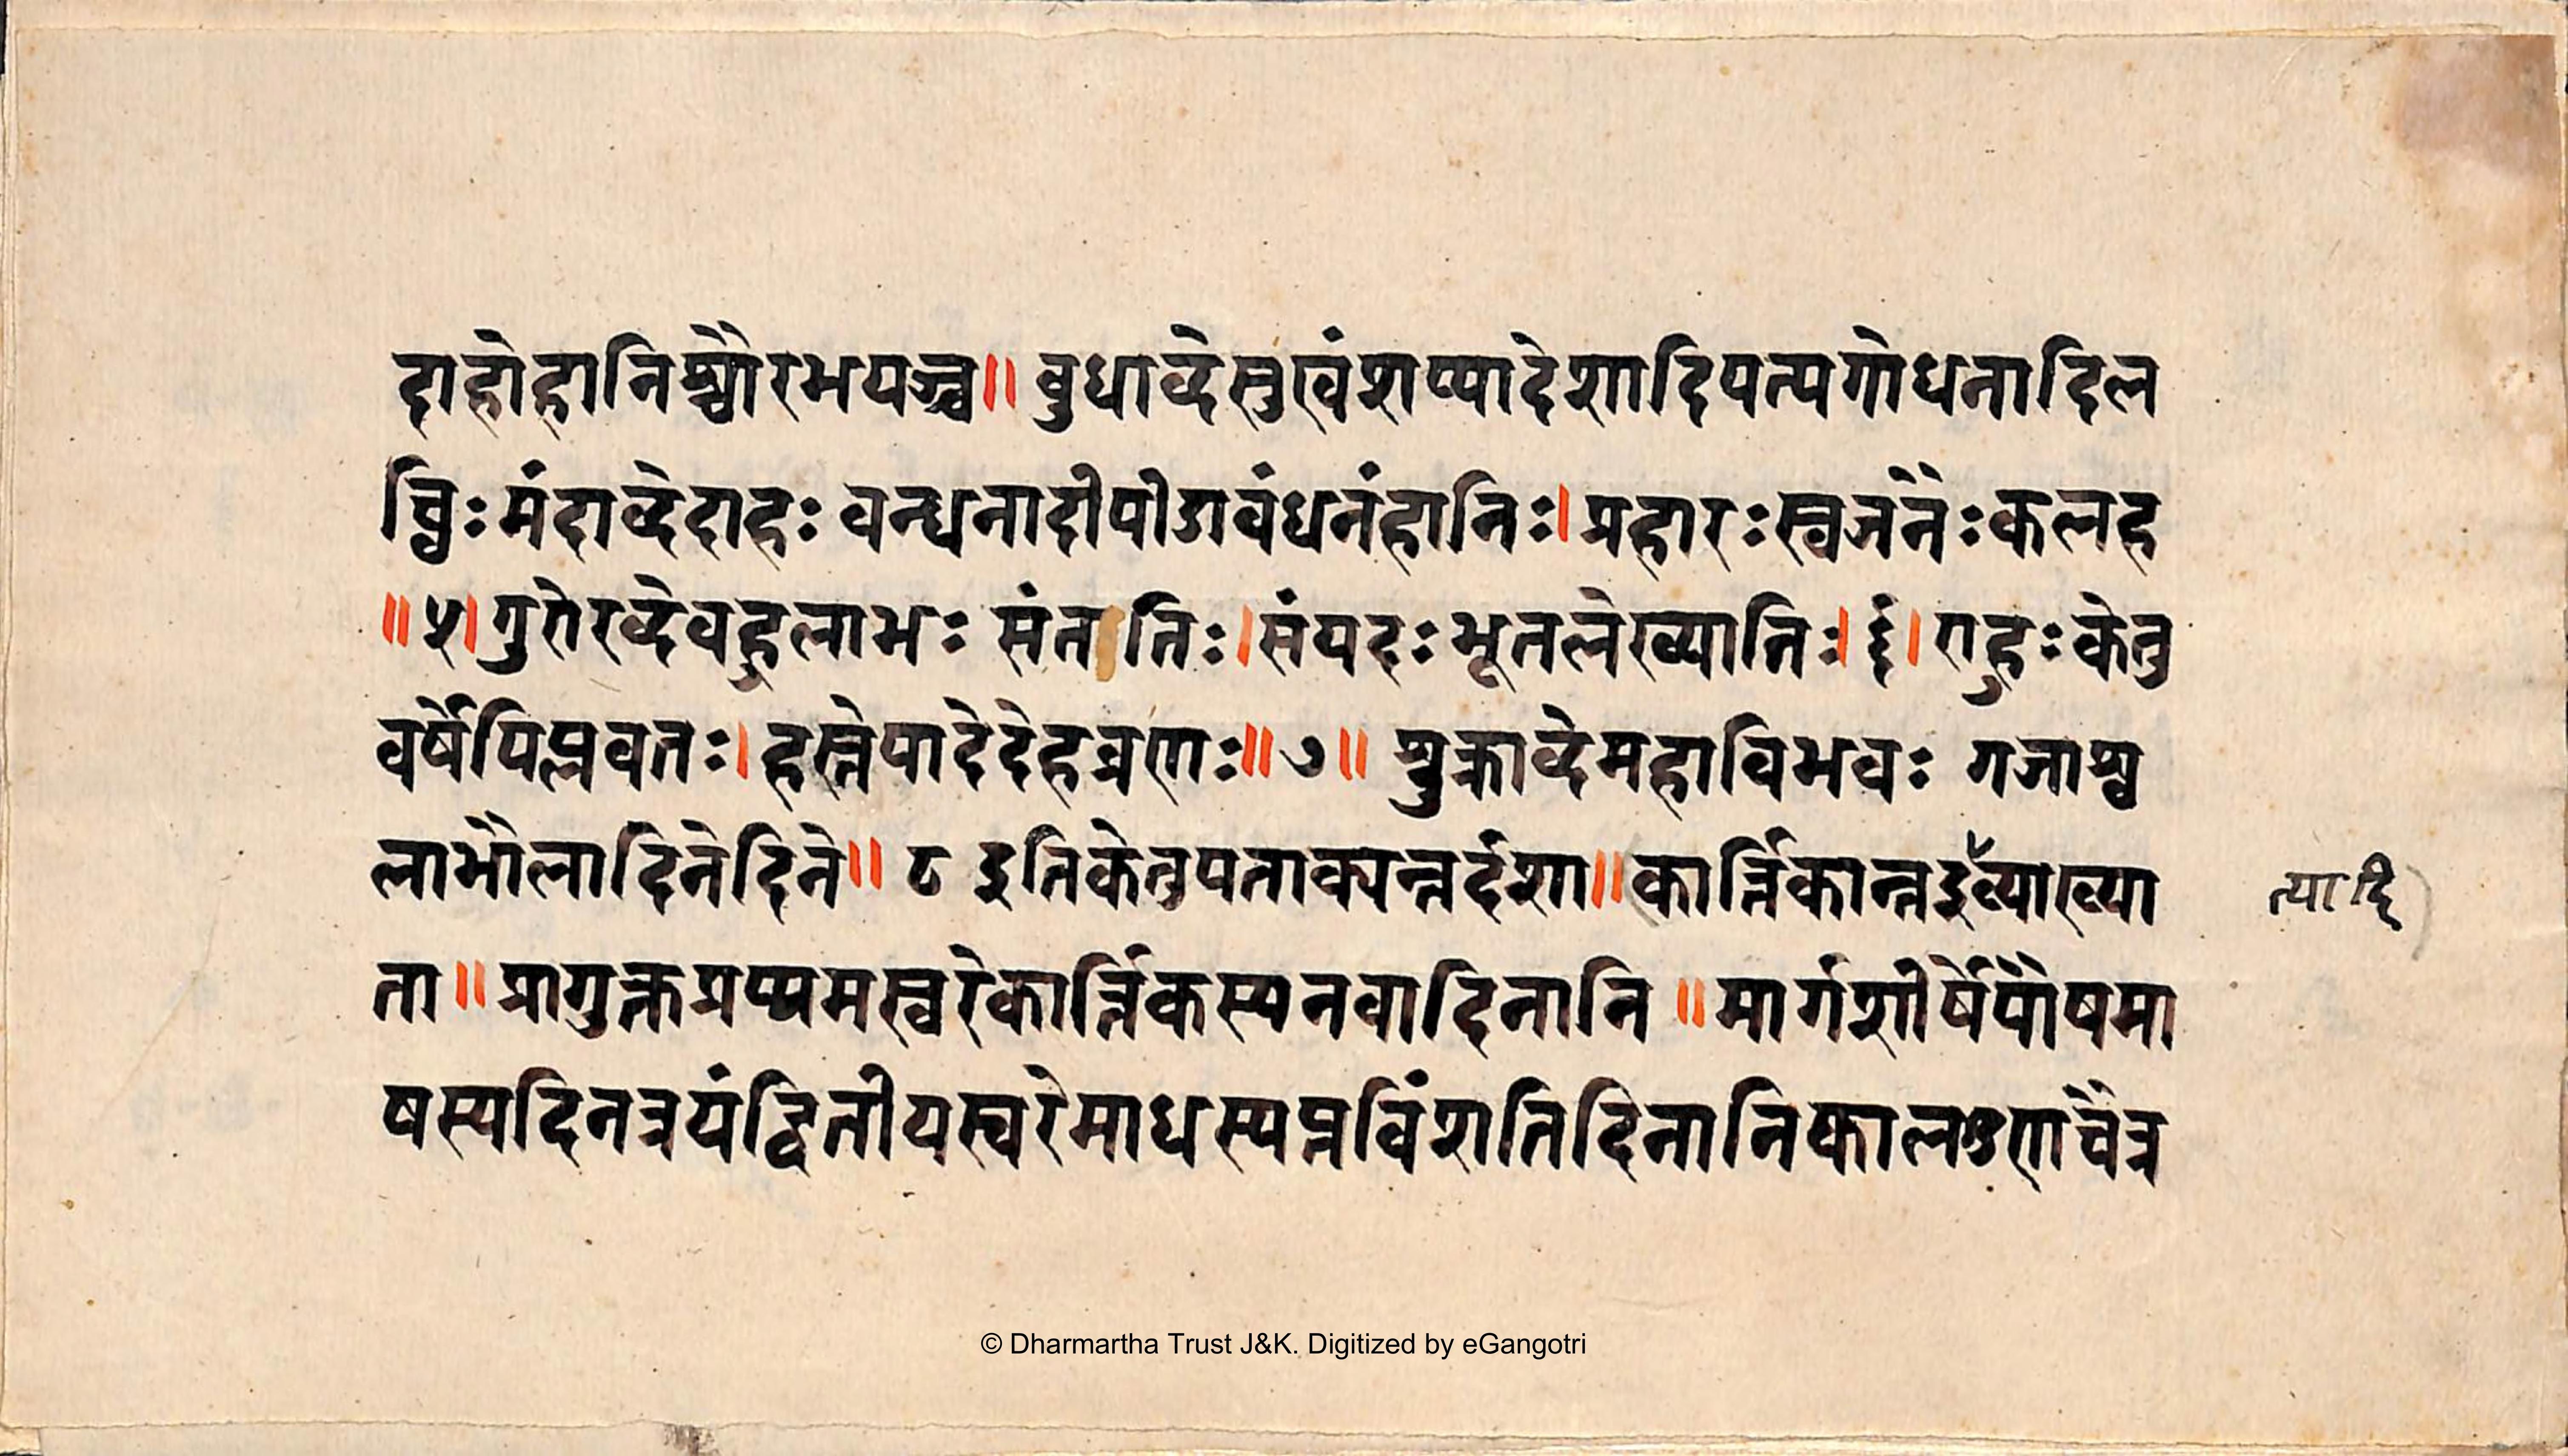 दाहोहानिश्चौरभयञ्च॥ वुधाव्देसुखंशय्यादेशादिपत्यगोधनादिल
व्धिः मंदाव्देदाहः वन्धनादीपीडावंधनंहानिः। प्रहारःस्वजनैःकलह
॥५।गुरोरव्देवहुलाभः संततिः।संपदःभूतलेख्यातिः।६। राहुःकेतु
वर्षेपिप्लवतः।हस्तेपादेदेहव्रणः॥७॥ शुक्राव्देमहाविभवः गजाश्व
लाभोलादिनेदिने॥ ८ इतिकेतुपताक्यन्तर्दशा॥कार्त्तिकान्तर्द्दव्याख्या
त्यादि
ता॥प्रागुक्तप्रथमस्वरेकार्त्तिकस्यनवादिनानि॥मार्गशीर्षेपौषमा
षस्यदिनत्रयंद्वितीयस्वरेमाधस्यप्तविंशतिदिनानिफाल्गुणचैत्र
© Dharmartha Trust J&K. Digitized by eGangotri